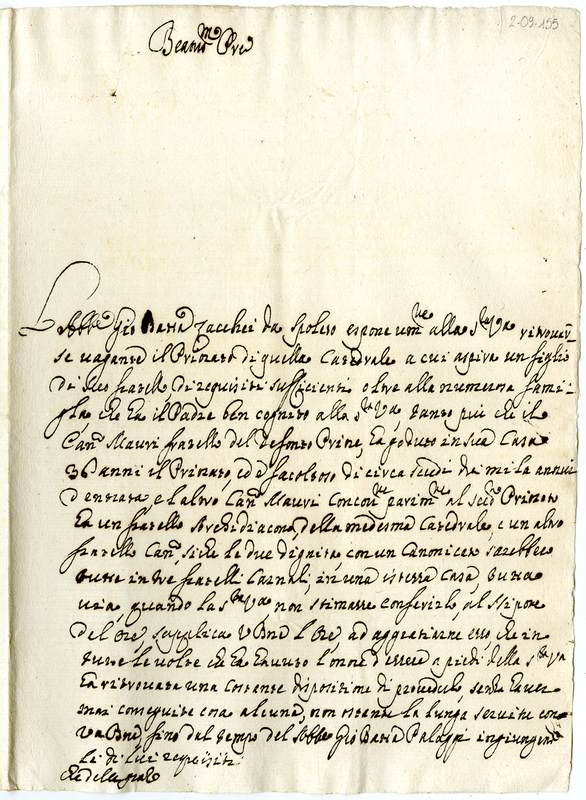 2-09-155
Beatmo Pre
L'Abbe Gio Batta Zacchei da Spoleto espone umte alla Stà Va ritrovar-
se vagante il Primato di quella Catedrale a cui aspira un figlio
di suo fratello di requisiti sufficienti oltre alla numerosa fami-
glia, che ha il Padre ben cognito alla Stà Va, tanto più che il
Canco Mauri fratello del defonto Priore, ha goduto in sua Casa
36 anni il Priorato, ed è facoltoso di circa scudi dui mila annui
d'entrata, e l'altro Canco Mauri parimte al Priorato
ha un fratello Archidiacono della medesima Catedrale, e un altro
fratello Canco, si che le due dignità con un Canonicato sarebbero
tutte in trè fratelli Carnali, in una istessa Casa, tutta
via, quando la Stà Va non stimasse conferirlo al Nipote
del Ore, supplica VBne l'Ore, ad aggratiarne esso, che in
tutte le volte che ha havuto l'onore d'essere a piedi della Stà Va
ha ritrovata una costante dispositione di provederlo, senza haver
mai conseguito cosa alcuna, non ostante la lunga servitù con
Va Bne, fino dal tempo del Gio Batta ingiungendo
li di lui requisiti
Che della grazia